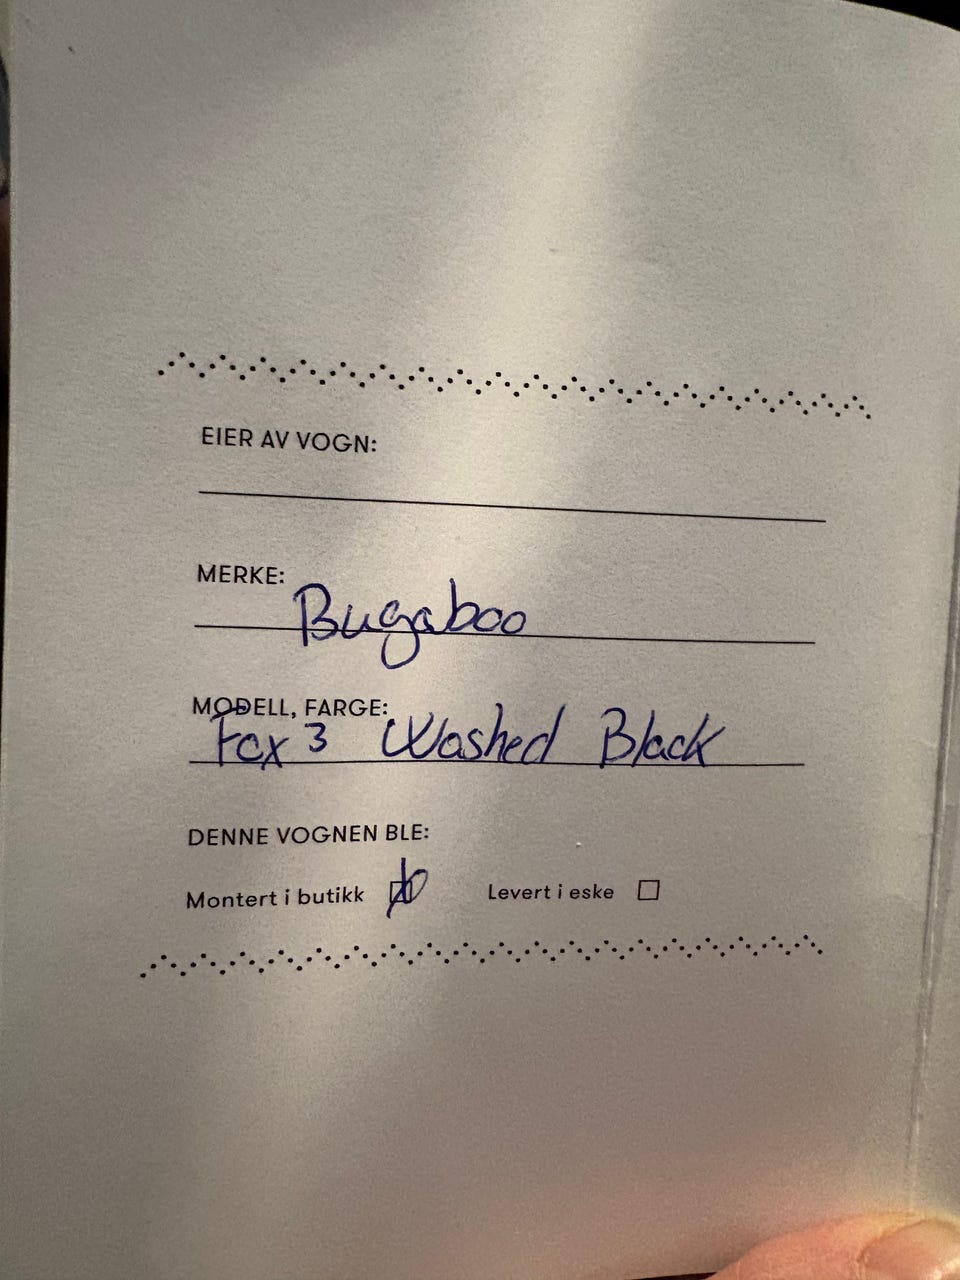 EIER AV VOGN:
MERKE:
Bugaboo
MODELL, FARGE:
Fox 3 Washed Black
DENNE VOGNEN BLE:
Montert i butikk Levert i eske